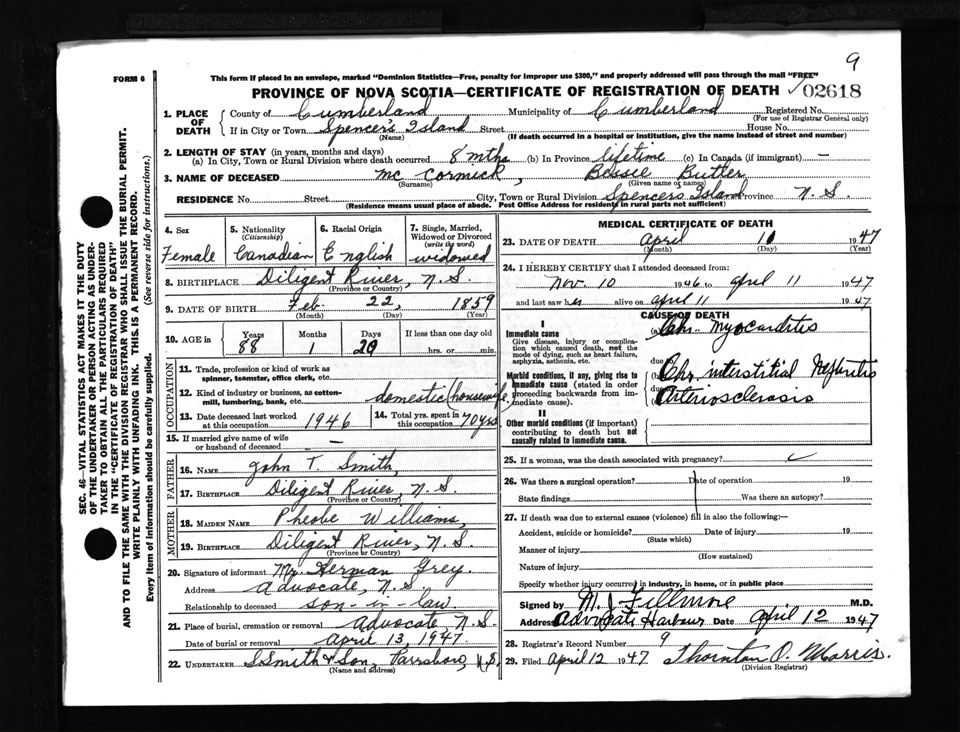 9
FORM 6
This form if placed in an envelope, marked "Dominion Statistics—Free, penalty for improper use $300," and properly addressed will pass through the mail "FREE"
PROVINCE OF NOVA SCOTIA—CERTIFICATE OF REGISTRATION OF DEATH 02618
SEC. 46—VITAL STATISTICS ACT MAKES IT THE DUTY
OF THE UNDERTAKER OR PERSON ACTING AS UNDER-
TAKER TO OBTAIN ALL THE PARTICULARS REQUIRED
IN THE "CERTIFICATE OF REGISTRATION OF DEATH"
AND TO FILE THE SAME WITH THE DIVISION REGISTRAR WHO SHALL ISSUE THE BURIAL PERMIT.
WRITE PLAINLY WITH UNFADING INK. THIS IS A PERMANENT RECORD.
Every item of information should be carefully supplied. (See reverse side for instructions.)
1. PLACE OF DEATH County of Cumberland Municipality of Cumberland Registered No.
(For use of Registrar General only)
If in City or Town Spencer's Island Street House No.
(Name) (If death occurred in a hospital or institution, give the name instead of street and number)
2. LENGTH OF STAY (in years, months and days)
(a) In City, Town or Rural Division where death occurred 8 mths (b) In Province lifetime (c) In Canada (if immigrant) —
3. NAME OF DECEASED Mc Cormick, Bessie Butler
(Surname) (Given name or names)
RESIDENCE No. Street City, Town or Rural Division Spencers Island Province N. S.
(Residence means usual place of abode. Post Office Address for residents in rural parts not sufficient)
4. Sex Female
5. Nationality (Citizenship) Canadian
6. Racial Origin English
7. Single, Married, Widowed or Divorced (write the word) widowed
8. BIRTHPLACE Diligent River, N. S.
(Province or Country)
9. DATE OF BIRTH Feb. 22, 1859
(Month) (Day) (Year)
10. AGE in Years 88 Months 1 Days 20 If less than one day old hrs. or min.
OCCUPATION
11. Trade, profession or kind of work as spinner, teamster, office clerk, etc.
12. Kind of industry or business, as cotton-mill, lumbering, bank, etc. domestic (housewife)
13. Date deceased last worked at this occupation 1946
14. Total yrs. spent in this occupation 70 yrs.
15. If married give name of wife or husband of deceased —
FATHER
16. NAME John T. Smith
17. BIRTHPLACE Diligent River, N. S.
(Province or Country)
MOTHER
18. MAIDEN NAME Pheobe Williams,
19. BIRTHPLACE Diligent River, N. S.
(Province or Country)
20. Signature of informant Mr. Herman Grey.
Address Advocate, N. S.
Relationship to deceased son-in-law.
21. Place of burial, cremation or removal Advocate N. S.
Date of burial or removal April 13, 1947.
22. UNDERTAKER S Smith & Son, Parrsboro, N. S.
(Name and address)
MEDICAL CERTIFICATE OF DEATH
23. DATE OF DEATH April 1947
(Month) (Day) (Year)
24. I HEREBY CERTIFY that I attended deceased from:
Nov. 10 1946 to April 11 1947
and last saw her alive on April 11 1947
CAUSE OF DEATH
I
Immediate cause
Give disease, injury or complication which caused death, not the mode of dying, such as heart failure, asphyxia, asthenia, etc.
(a) Chr. Myocarditis
due to
Morbid conditions, if any, giving rise to immediate cause (stated in order proceeding backwards from immediate cause).
(b) Chr. interstitial Nephritis
due to
Arteriosclerosis
II
Other morbid conditions (if important) contributing to death but not causally related to immediate cause.
25. If a woman, was the death associated with pregnancy?
26. Was there a surgical operation? Date of operation 19
State findings Was there an autopsy?
27. If death was due to external causes (violence) fill in also the following:—
Accident, suicide or homicide? Date of injury 19
(State which)
Manner of injury
(How sustained)
Nature of injury
Specify whether injury occurred in industry, in home, or in public place
Signed by M. J. Fillmore M.D.
Address Advocate Harbour Date April 12 1947
28. Registrar's Record Number 9
29. Filed April 12 1947 Thornton O. Morris.
(Division Registrar)